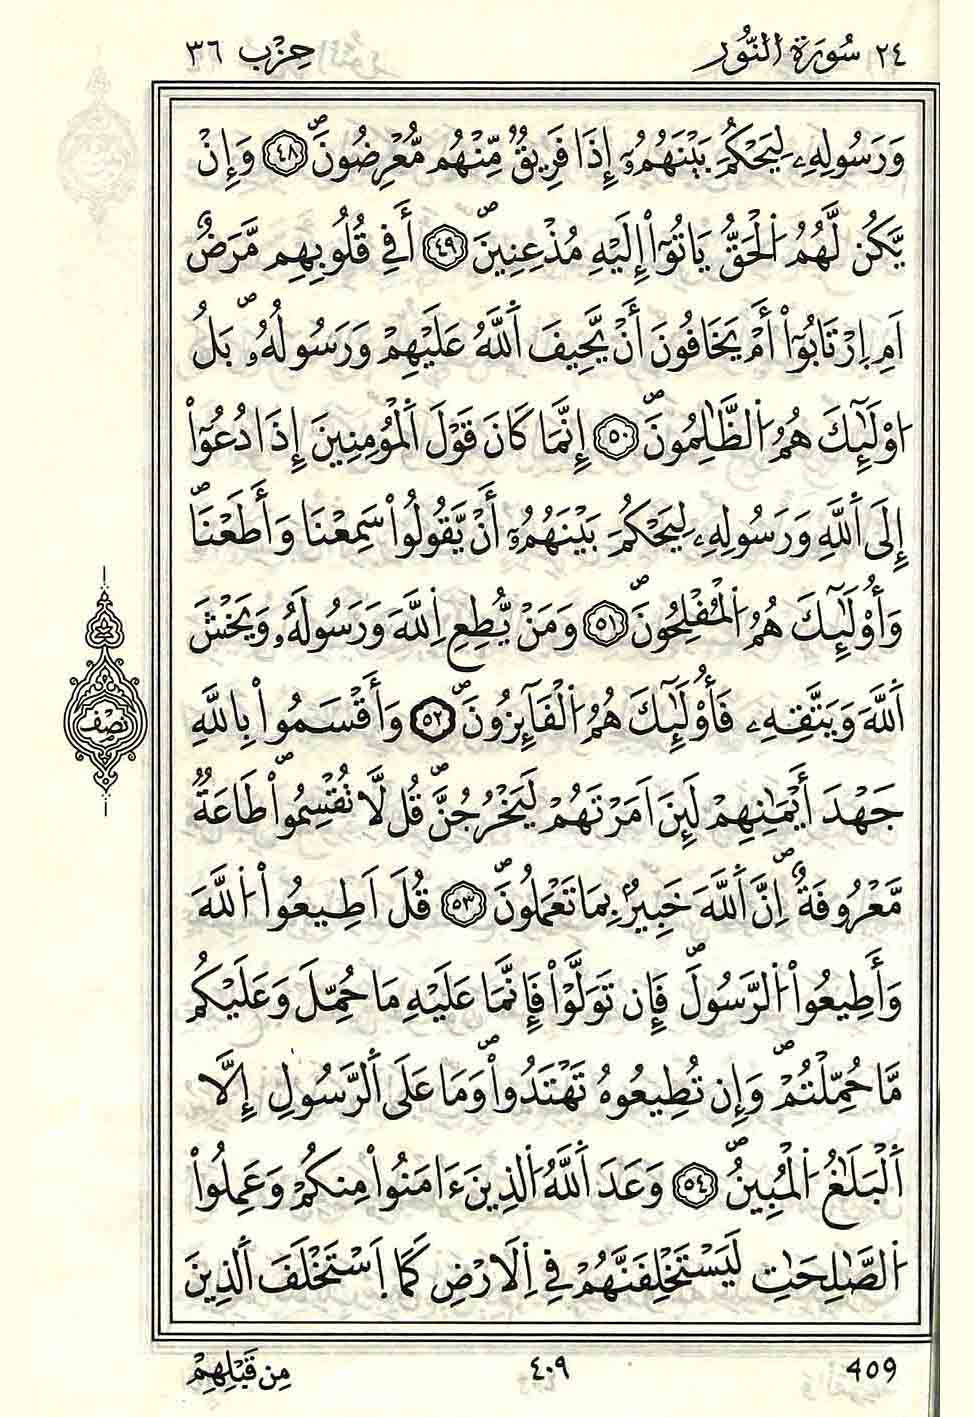 ٢٤ سُورَةُ النُّور حِزْب ٣٦
وَرَسُولِهِۦ لِيَحْكُمَ بَيْنَهُمُۥٓ إِذَا فَرِيقٌ مِّنْهُم مُّعْرِضُونَۖ ٤٨ وَإِنْ
يَّكُن لَّهُمُ اُ۬لْحَقُّ يَاتُوٓاْ إِلَيْهِ مُذْعِنِينَۖ ٤٩ أَفِے قُلُوبِهِم مَّرَضٌ
اَمِ اِ۪رْتَابُوٓاْ أَمْ يَخَافُونَ أَنْ يَّحِيفَ اَ۬للَّهُ عَلَيْهِمْ وَرَسُولُهُۥۖ بَلُ
ا۟وْلَٰٓئِكَ هُمُ اُ۬لظَّٰلِمُونَۖ ٥٠ إِنَّمَا كَانَ قَوْلَ اَ۬لْمُومِنِينَ إِذَا دُعُوٓاْ
إِلَى اَ۬للَّهِ وَرَسُولِهِۦ لِيَحْكُمَ بَيْنَهُمُۥٓ أَنْ يَّقُولُواْ سَمِعْنَا وَأَطَعْنَاۖ
وَأُوْلَٰٓئِكَ هُمُ اُ۬لْمُفْلِحُونَۖ ٥١ وَمَنْ يُّطِعِ اِ۬للَّهَ وَرَسُولَهُۥ وَيَخْشَ
اَ۬للَّهَ وَيَتَّقِهِۦ فَأُوْلَٰٓئِكَ هُمُ اُ۬لْفَآئِزُونَۖ ٥٢ وَأَقْسَمُواْ بِاللَّهِ
جَهْدَ أَيْمَٰنِهِمْ لَئِنَ اَمَرْتَهُمْ لَيَخْرُجُنَّۖ قُل لَّا تُقْسِمُواْۖ طَاعَةٌ
مَّعْرُوفَةٌۖ اِنَّ اَ۬للَّهَ خَبِيرُۢ بِمَا تَعْمَلُونَۖ ٥٣ قُلَ اَطِيعُواْ اُ۬للَّهَ
وَأَطِيعُواْ اُ۬لرَّسُولَۖ فَإِن تَوَلَّوْاْ فَإِنَّمَا عَلَيْهِ مَا حُمِّلَ وَعَلَيْكُم
مَّا حُمِّلْتُمْۖ وَإِن تُطِيعُوهُ تَهْتَدُواْۖ وَمَا عَلَى اَ۬لرَّسُولِ إِلَّا
اَ۬لْبَلَٰغُ اُ۬لْمُبِينُۖ ٥٤ وَعَدَ اَ۬للَّهُ اُ۬لذِينَ ءَامَنُواْ مِنكُمْ وَعَمِلُواْ
اُ۬لصَّٰلِحَٰتِ لَيَسْتَخْلِفَنَّهُمْ فِے اِ۬لَارْضِ كَمَا اَ۪سْتَخْلَفَ اَ۬لذِينَ
نصف
مِن قَبْلِهِمْ ٤٠٩ 409